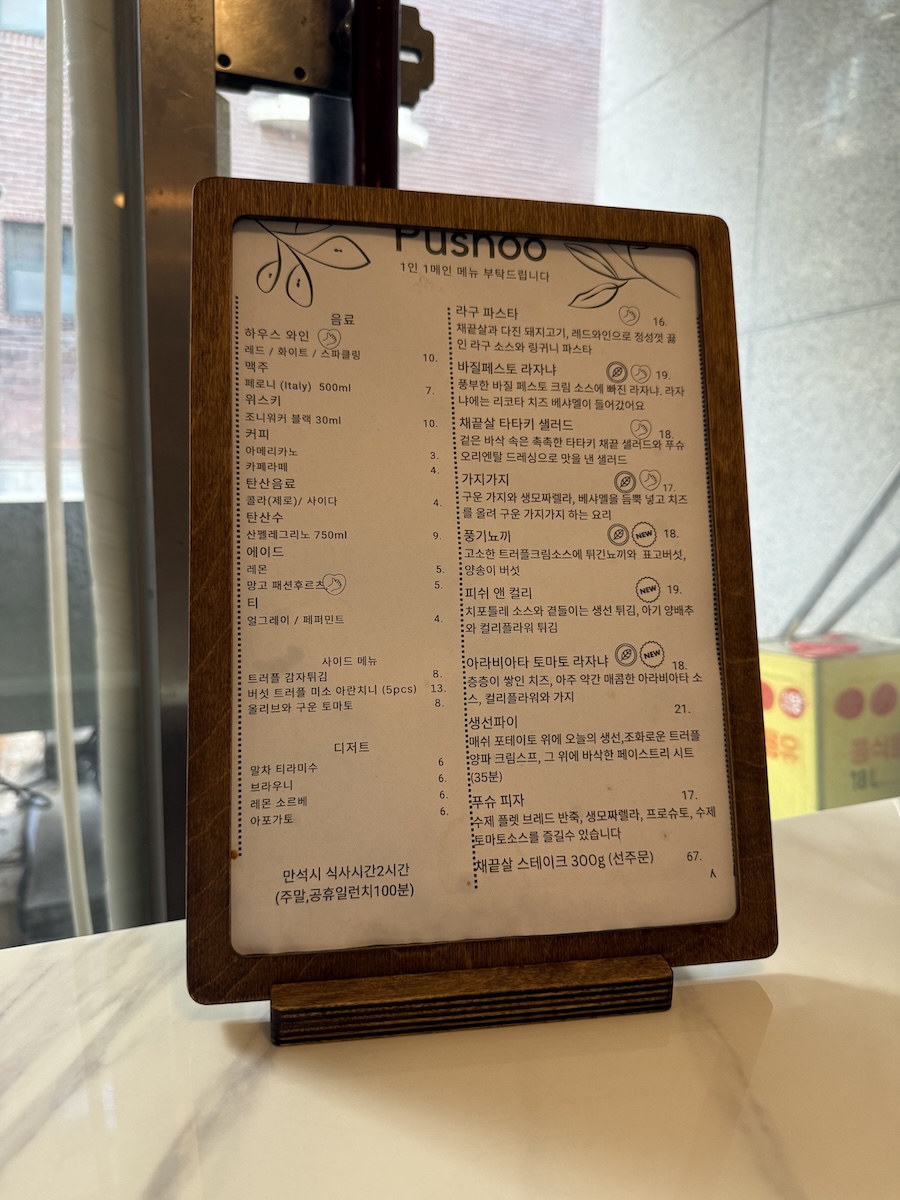 Pushoo
1인 1메인 메뉴 부탁드립니다
음료
하우스 와인
레드 / 화이트 / 스파클링 10.
맥주
페로니 (Italy) 500ml 7.
위스키
조니워커 블랙 30ml 10.
커피
아메리카노 3.
카페라떼 4.
탄산음료
콜라(제로)/ 사이다 4.
탄산수
산펠레그리노 750ml 9.
에이드
레몬 5.
망고 패션후르츠 5.
티
얼그레이 / 페퍼민트 4.
사이드 메뉴
트러플 감자튀김 8.
버섯 트러플 미소 아란치니 (5pcs) 13.
올리브와 구운 토마토 8.
디저트
말차 티라미수 6
브라우니 6.
레몬 소르베 6.
아포가토 6.
만석시 식사시간2시간
(주말,공휴일런치100분)
라구 파스타 16.
채끝살과 다진 돼지고기, 레드와인으로 정성껏 끓
인 라구 소스와 링귀니 파스타
바질페스토 라자냐 19.
풍부한 바질 페스토 크림 소스에 빠진 라자냐. 라자
냐에는 리코타 치즈 베샤멜이 들어갔어요
채끝살 타타키 샐러드 18.
겉은 바삭 속은 촉촉한 타타키 채끝 샐러드와 푸슈
오리엔탈 드레싱으로 맛을 낸 샐러드
가지가지 17.
구운 가지와 생모짜렐라, 베샤멜을 듬뿍 넣고 치즈
를 올려 구운 가지가지 하는 요리
풍기뇨끼 NEW 18.
고소한 트러플크림소스에 튀긴뇨끼와 표고버섯,
양송이 버섯
피쉬 앤 컬리 NEW 19.
치포틀레 소스와 곁들이는 생선 튀김, 아기 양배추
와 컬리플라워 튀김
아라비아타 토마토 라자냐 NEW 18.
층층이 쌓인 치즈, 아주 약간 매콤한 아라비아타 소
스, 컬리플라워와 가지
생선파이 21.
매쉬 포테이토 위에 오늘의 생선,조화로운 트러플
양파 크림스프, 그 위에 바삭한 페이스트리 시트
(35분)
푸슈 피자 17.
수제 플렛 브레드 반죽, 생모짜렐라, 프로슈토, 수제
토마토소스를 즐길수 있습니다
채끝살 스테이크 300g (선주문) 67.
18 L